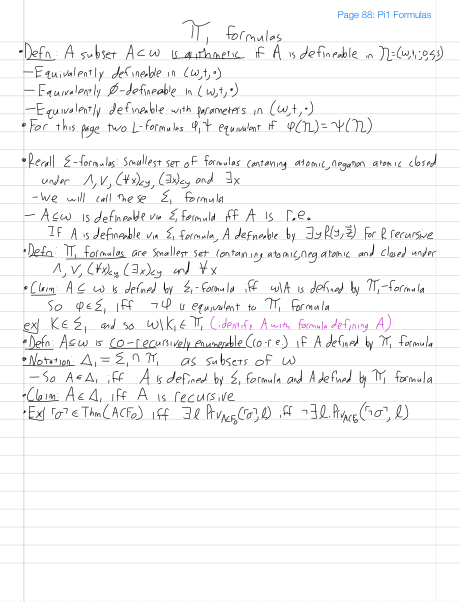 Page 88: Pi1 Formulas
Π₁ formulas
• Defn: A subset A⊂ω is arithmetic if A is defineable in 𝔑=(ω,+,·,0,S,≤)
— Equivalently defineable in (ω,+,·)
— Equivalently ∅-defineable in (ω,+,·)
— Equivalently defineable with parameters in (ω,+,·)
• For this page two L-formulas φ,ψ equivalent if φ(𝔑)=ψ(𝔑)
• Recall Σ-formulas smallest set of formulas containing atomic, negation atomic closed
under ∧,∨, (∀x)<y, (∃x)<y and ∃x
- We will call these Σ₁ formula
— A⊆ω is defineable via Σ₁ formula iff A is r.e.
If A is defineable via Σ₁ formula, A defineable by ∃yR(y,z̄) for R recursive
• Defn: Π₁ formulas are smallest set containing atomic, neg atomic and closed under
∧,∨, (∀x)<y (∃x)<y and ∀x
• Claim: A⊆ω is defined by Σ₁-formula iff ω\A is defined by Π₁-formula
So φ∈Σ₁ iff ¬φ is equivalent to Π₁ formula
ex| K∈Σ₁ and so ω\K∈Π₁ (identify A with formula defining A)
• Defn: A⊆ω is co-recursively enumerable (co-r.e.) if A defined by Π₁ formula
• Notation: Δ₁=Σ₁∩Π₁ as subsets of ω
— So A∈Δ₁ iff A is defined by Σ₁ formula and A defined by Π₁ formula
• Claim: A∈Δ₁ iff A is recursive
• Ex| ⌜σ⌝∈Thm(ACF₀) iff ∃l Prv_ACF₀(⌜σ⌝,l) iff ¬∃l.Prv_ACF₀(⌜¬σ⌝,l)